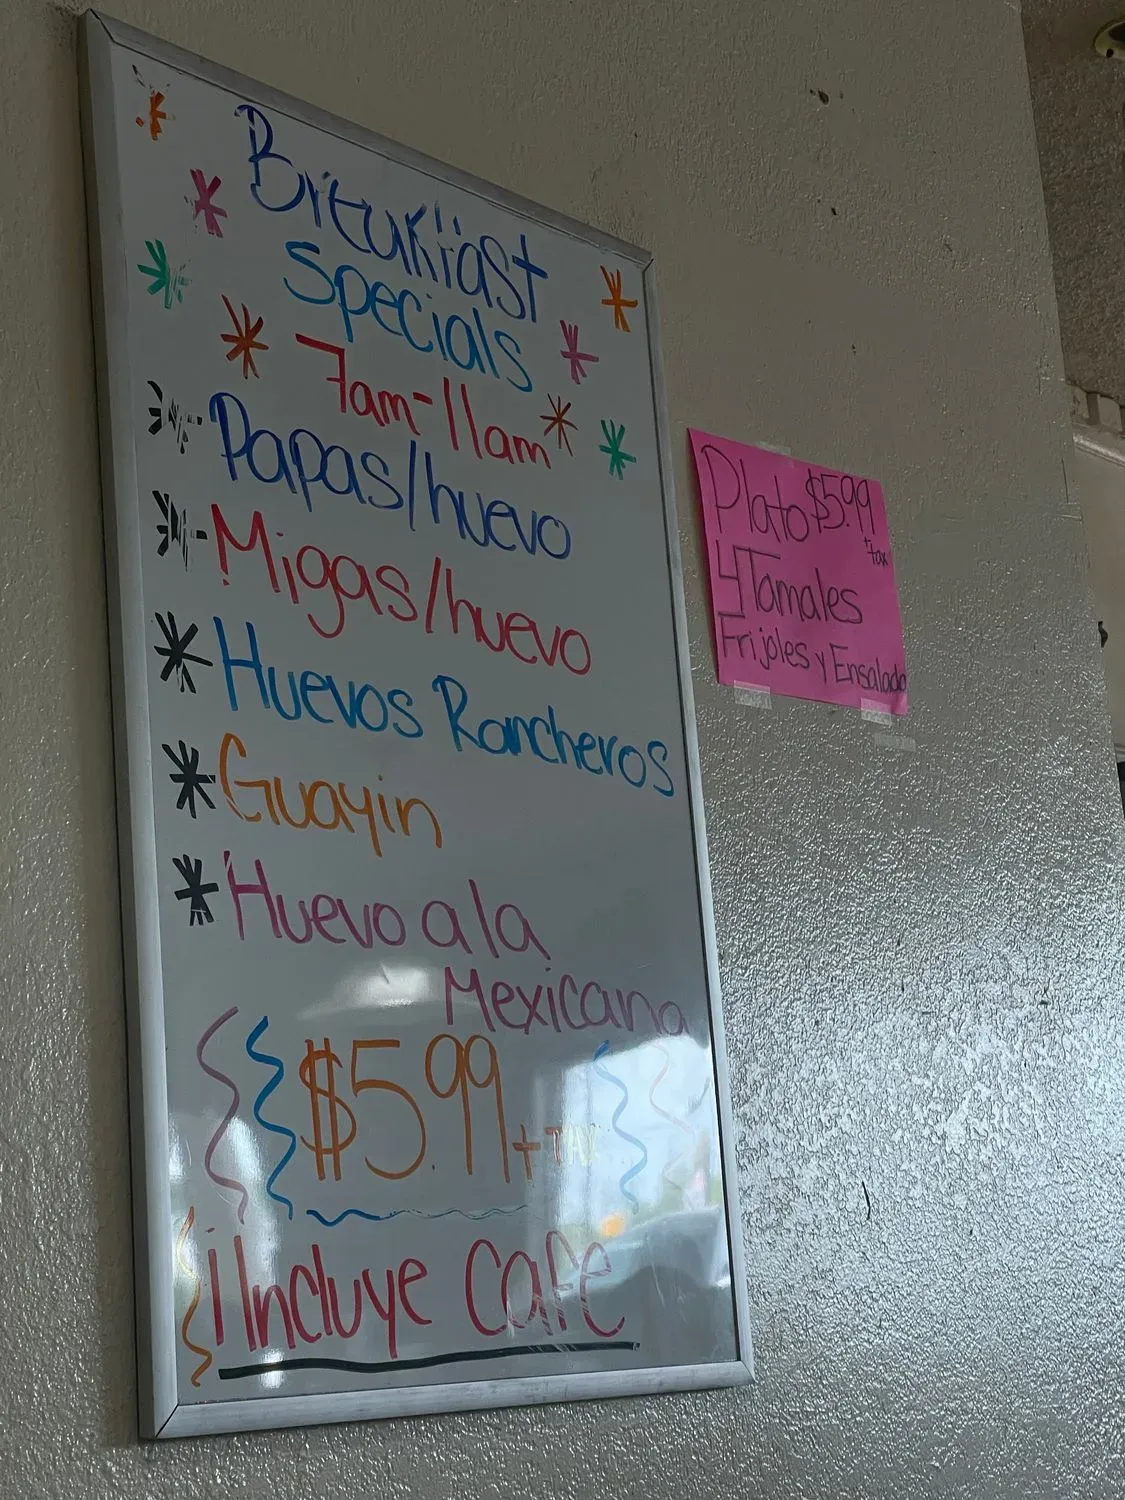 Breakfast
Specials
7am-11am
Papas/huevo
Migas/huevo
Huevos Rancheros
Guayin
Huevo a la
Mexicana
$5.99 + TAX
¡Incluye Café
Plato $5.99
+tax
4 Tamales
Frijoles y Ensalada